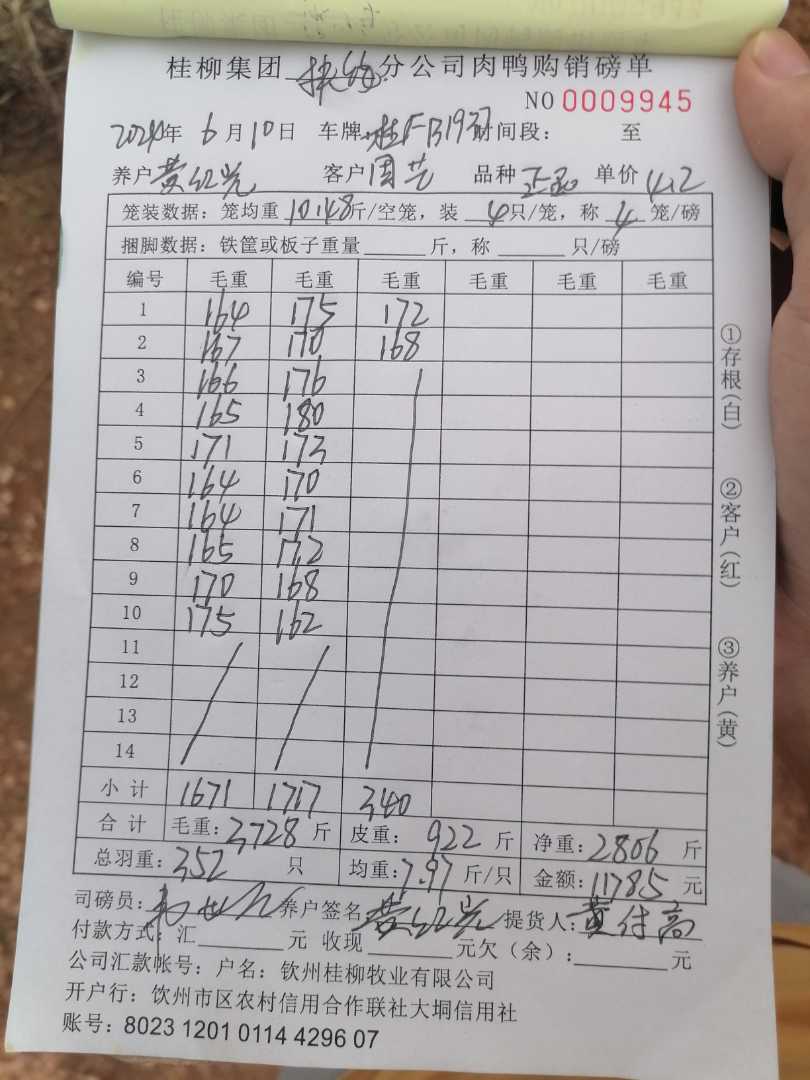 桂柳集团 分公司肉鸭购销磅单
NO 0009945
2024年 6月10日 车牌: 时间段: 至
养户 黄红光 客户 周芸 品种 单价 4.2
笼装数据: 笼均重 10.48斤/空笼, 装 4只/笼, 称 4 笼/磅
捆脚数据: 铁筐或板子重量 斤, 称 只/磅
编号 毛重 毛重 毛重 毛重 毛重 毛重
1 164 175 172
2 167 170 168
3 166 176
4 165 180
5 171 173
6 164 170
7 164 171
8 165 172
9 170 168
10 175 162
11
12
13
14
小计 1671 1717 340
合计 毛重: 3728 斤 皮重: 922 斤 净重: 2806 斤
总羽重: 352 只 均重: 7.97 斤/只 金额: 11785 元
司磅员: 养户签名 黄红光 提货人: 黄付高
付款方式: 汇 元 收现 元欠(余): 元
公司汇款帐号: 户名: 钦州桂柳牧业有限公司
开户行: 钦州市区农村信用合作联社大垌信用社
账号: 8023 1201 0114 4296 07
①存根(白)
②客户(红)
③养户(黄)